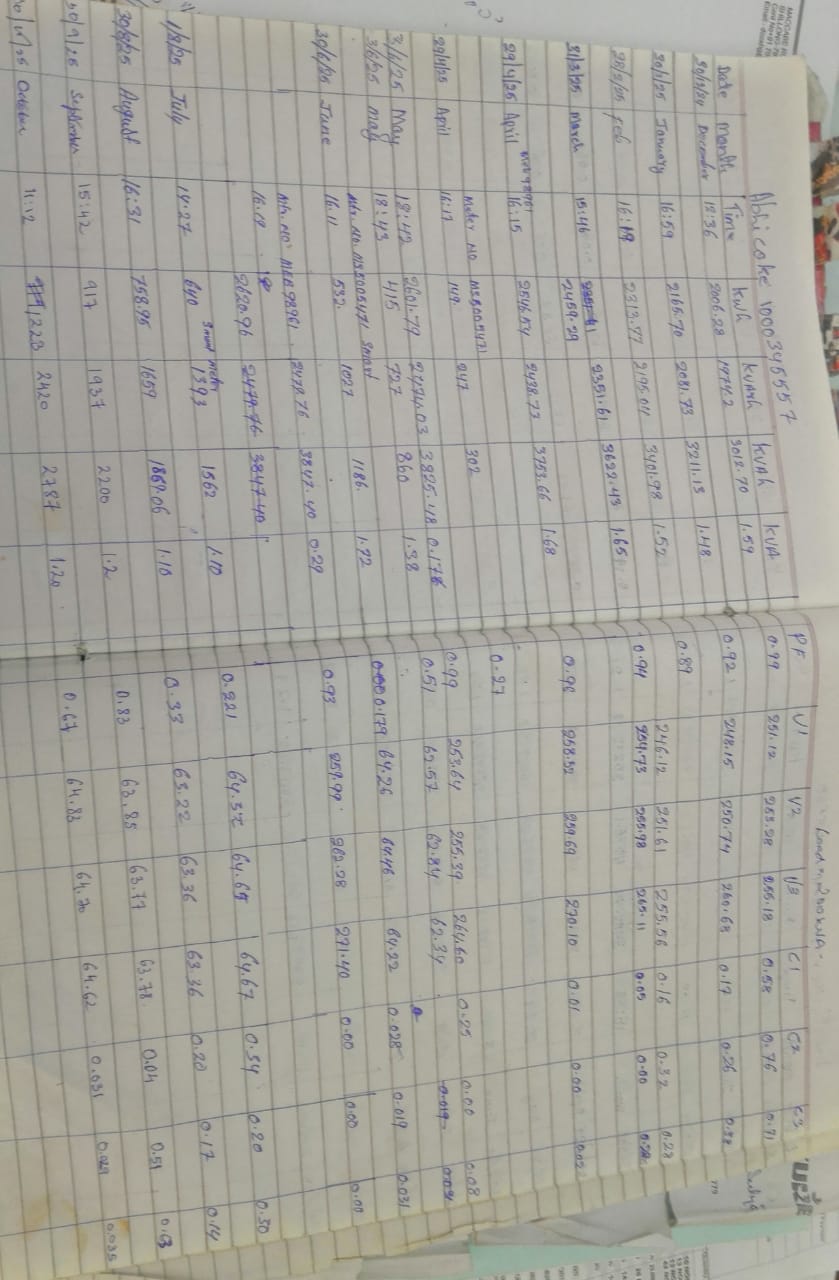 Abhi coke 1000345557
Load = 200 KVA
Date Month Time kwh kvarh kvah kva PF V1 V2 V3 C1 C2 C3
30/12/24 December 13:36 2006.28 1974.2 3012.70 1.59 0.99 251.12 253.28 255.18 0.58 0.76 0.71
30/1/25 January 16:59 2165.70 2081.73 3211.13 1.48 0.92 248.15 250.74 260.68 0.17 0.26
28/2/25 Feb 16:19 2313.77 2195.04 3401.98 1.52 0.89 246.12 251.61 255.56 0.16 0.32 0.23
31/3/25 March 15:46 2459.29 2351.61 3622.43 1.65 0.94 254.73 255.98 265.11 0.05 0.00
29/4/25 April 16:15 2546.54 2438.73 3753.66 1.68 0.98 258.52 259.69 270.10 0.01 0.00 0.02
Meter No MSB005471
29/4/25 April 16:17 149 247 302 0.27
3/6/25 May 18:42 2601.79 2474.03 3825.48 0.178 0.99 253.64 255.39 264.60 0.25 0.00 0.08
3/6/25 may 18:43 415 727 860 1.38 0.51 62.57 62.84 62.34 0.019
Mtr. No. MSB005471 Smart
30/6/25 June 16.11 532. 1027 1186. 1.72 0.179 64.26 64.46 64.22 0.028 0.019 0.031
Mtr. No. MEB98961. 2479.76 3847.40 0.29 0.93 259.99 262.28 271.40 0.00 0.00 0.00
16.09 2620.96 2479.76 3847.40
Smart meter
1/8/25 July 14:27 640 1393 1562 1.10 0.221 64.52 64.65 64.67 0.54 0.20 0.50
30/8/25 August 16:31 758.95 1659 1869.06 1.10 0.33 63.22 63.36 63.36 0.20 0.17 0.14
30/9/25 September 15:42 917 1937 2200 1.2 0.83 63.85 63.77 63.78 0.04 0.51 0.63
October 11:12 1223 2420 2787 1.20 0.67 64.83 64.70 64.62 0.031 0.029 0.035